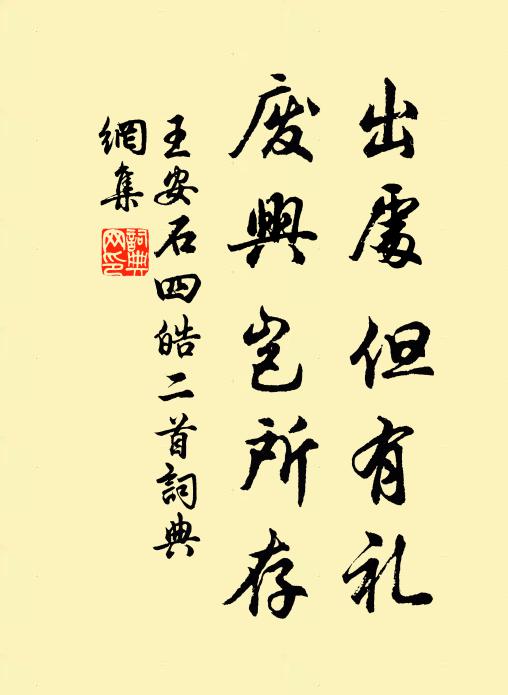 出處但有礼
廢興豈所存
王安石四皓二首詞典
網集
詞典
网印